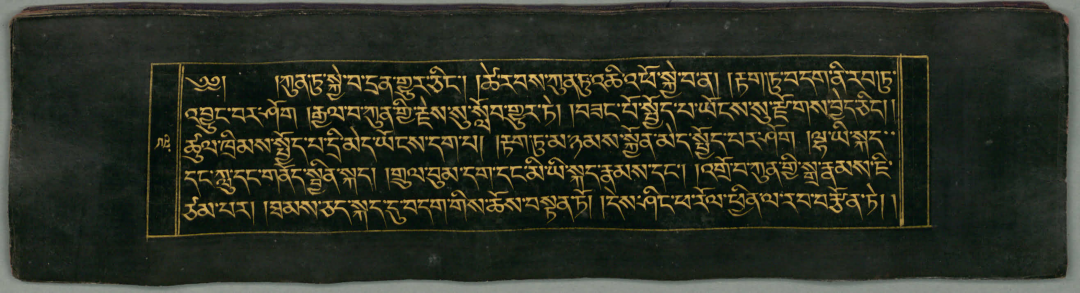 ༄༅། །ཀུན་ཏུ་སྐྱེ་བ་དྲན་གྱུར་ཅིང་། །ཚེ་རབས་ཀུན་ཏུ་འཆི་འཕོ་སྐྱེ་བན། །རྟག་ཏུ་བདག་ནི་རབ་ཏུ་
འབྱུང་བར་ཤོག །རྒྱལ་བ་ཀུན་གྱི་རྗེས་སུ་སློབ་གྱུར་ཏེ། །བཟང་པོ་སྤྱོད་པ་ཡོངས་སུ་རྫོགས་བྱེད་ཅིང། །
ཚུལ་ཁྲིམས་སྤྱོད་པ་དྲི་མེད་ཡོངས་དག་པ། །རྟག་ཏུ་མ་ཉམས་སྐྱོན་མེད་སྤྱོད་པར་ཤོག །ལྷ་ཡི་སྐད་
དང་ཀླུ་དང་གནོད་སྦྱིན་སྐད། །གྲུལ་བུམ་དག་དང་མི་ཡི་སྐད་རྣམས་དང་། །འགྲོ་བ་ཀུན་གྱི་སྒྲ་རྣམས་ཇི་
ཙམ་པར། །ཐམས་ཅད་སྐད་དུ་བདག་གིས་ཆོས་བསྟན་ཏོ། །དེས་ཤིང་ཕ་རོལ་ཕྱིན་ལ་རབ་བརྩོན་ཏེ། །